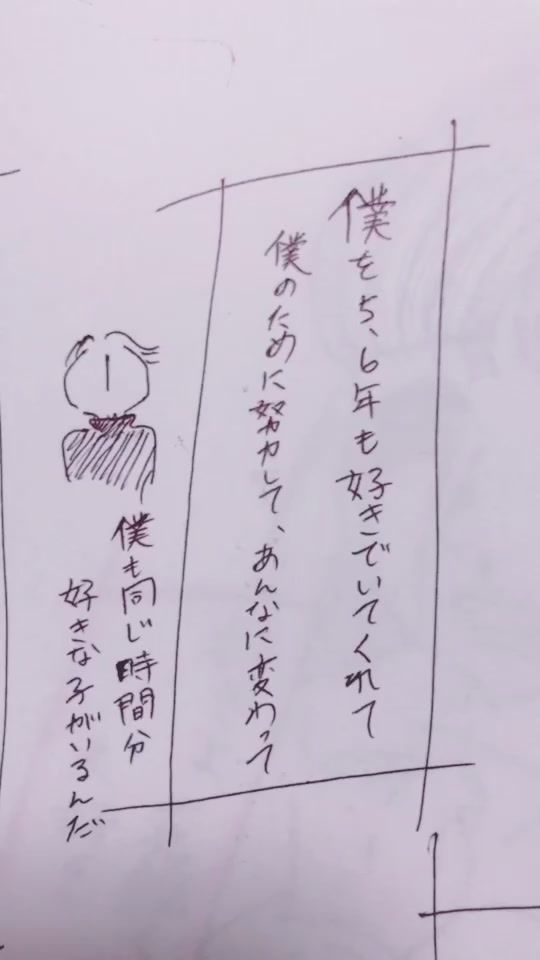 僕を5、6年も好きでいてくれて
僕のために努力して、あんなに変わって
僕も同じ時間分
好きな子がいるんだ